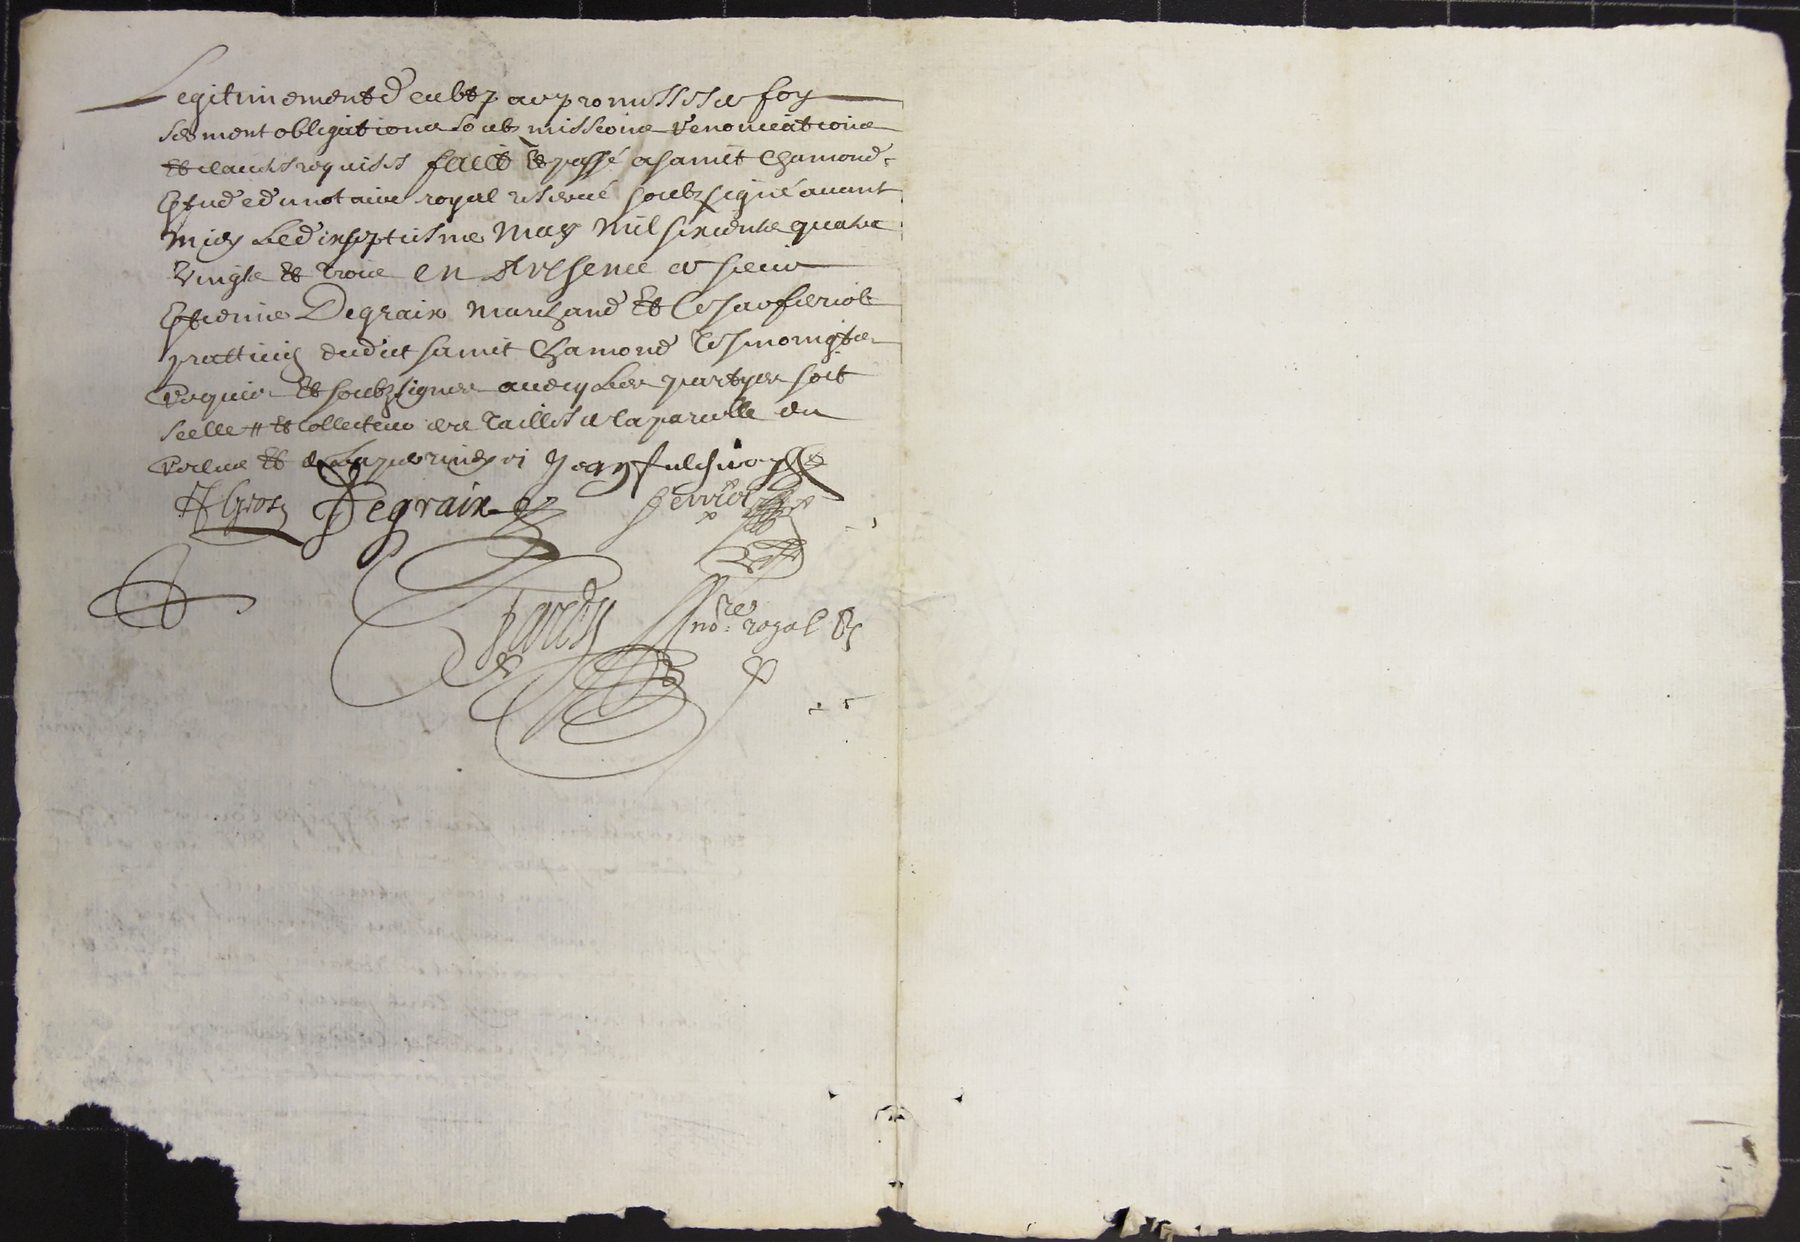 Legitimement deubtz av promisses de foy
serment obligations soubmissions renonciations
et clauses requises faict et passé a sainct Chamond
Estude du notaire royal reservé soubzsigné avant
midy Le dixseptiesme May mil six cents quatre
vingts et trois en presence de sieur
Estienne Degraix marchand et Cesar ferriol
pratticien dudict sainct Chamond tesmoingtz
requis et soubzsignes avecq Les partyes soit
seellé et collecteur des tailles de la parcelle du
et de
Gros Degraix ferriol
Tardy no.re royal